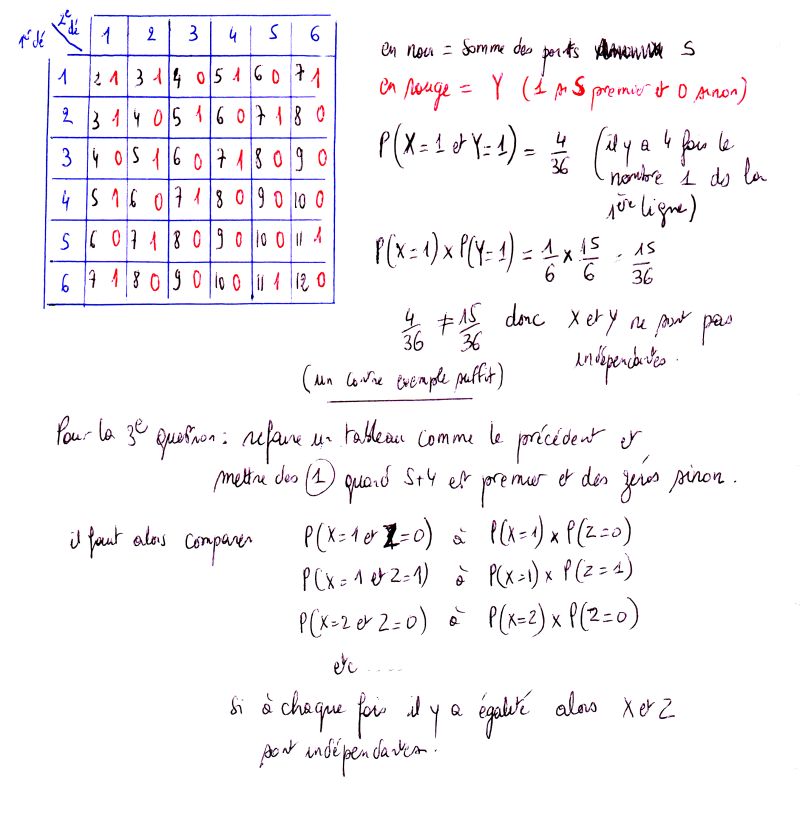 2e dé
1er dé 1 2 3 4 5 6
1 2 1 3 1 4 0 5 1 6 0 7 1
2 3 1 4 0 5 1 6 0 7 1 8 0
3 4 0 5 1 6 0 7 1 8 0 9 0
4 5 1 6 0 7 1 8 0 9 0 10 0
5 6 0 7 1 8 0 9 0 10 0 11 1
6 7 1 8 0 9 0 10 0 11 1 12 0
en noir = somme des points S
en rouge = Y (1 si S premier et 0 sinon)
P(X=1 et Y=1) = 4/36 (il y a 4 fois le
nombre 1 ds la
1ère ligne)
P(X=1) × P(Y=1) = 1/6 × 15/6 = 15/36
4/36 ≠ 15/36 donc X et Y ne sont pas
indépendantes.
(un contre exemple suffit)
Pour la 3e question : refaire un tableau comme le précédent et
mettre des 1 quand S+4 est premier et des zéros sinon.
il faut alors comparer P(X=1 et Z=0) à P(X=1) × P(Z=0)
P(X=1 et Z=1) à P(X=1) × P(Z=1)
P(X=2 et Z=0) à P(X=2) × P(Z=0)
etc .....
Si à chaque fois il y a égalité alors X et Z
sont indépendantes.